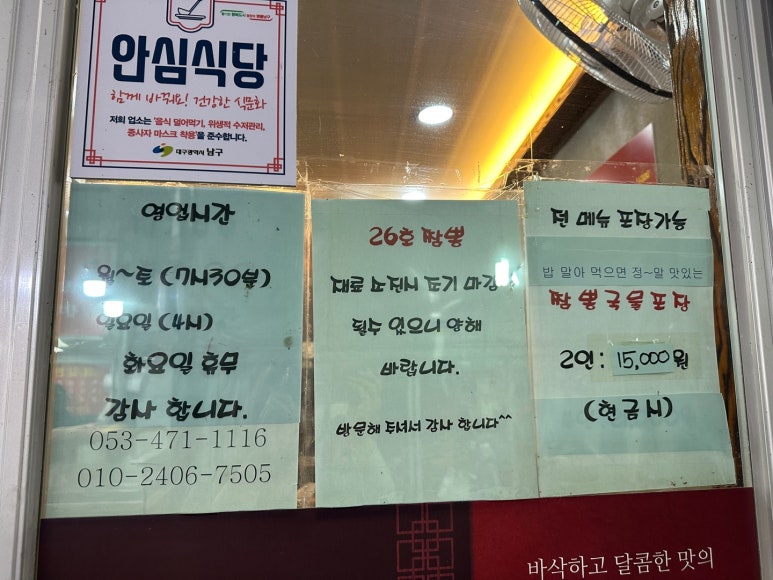 안심식당
함께 바꿔요! 건강한 식문화
저희 업소는 '음식 덜어먹기, 위생적 수저관리,
종사자 마스크 착용'을 준수합니다.
대구광역시 남구
영업시간
월~토 (7시30분)
일요일 (4시)
화요일 휴무
감사 합니다.
053-471-1116
010-2406-7505
26호 짬뽕
재료 소진시 조기 마감
될수 있으니 양해
바랍니다.
방문해 주셔서 감사 합니다^^
전 메뉴 포장가능
밥 말아 먹으면 정~말 맛있는
짬뽕국물포장
2인 : 15,000원
(현금시)
바삭하고 달콤한 맛의